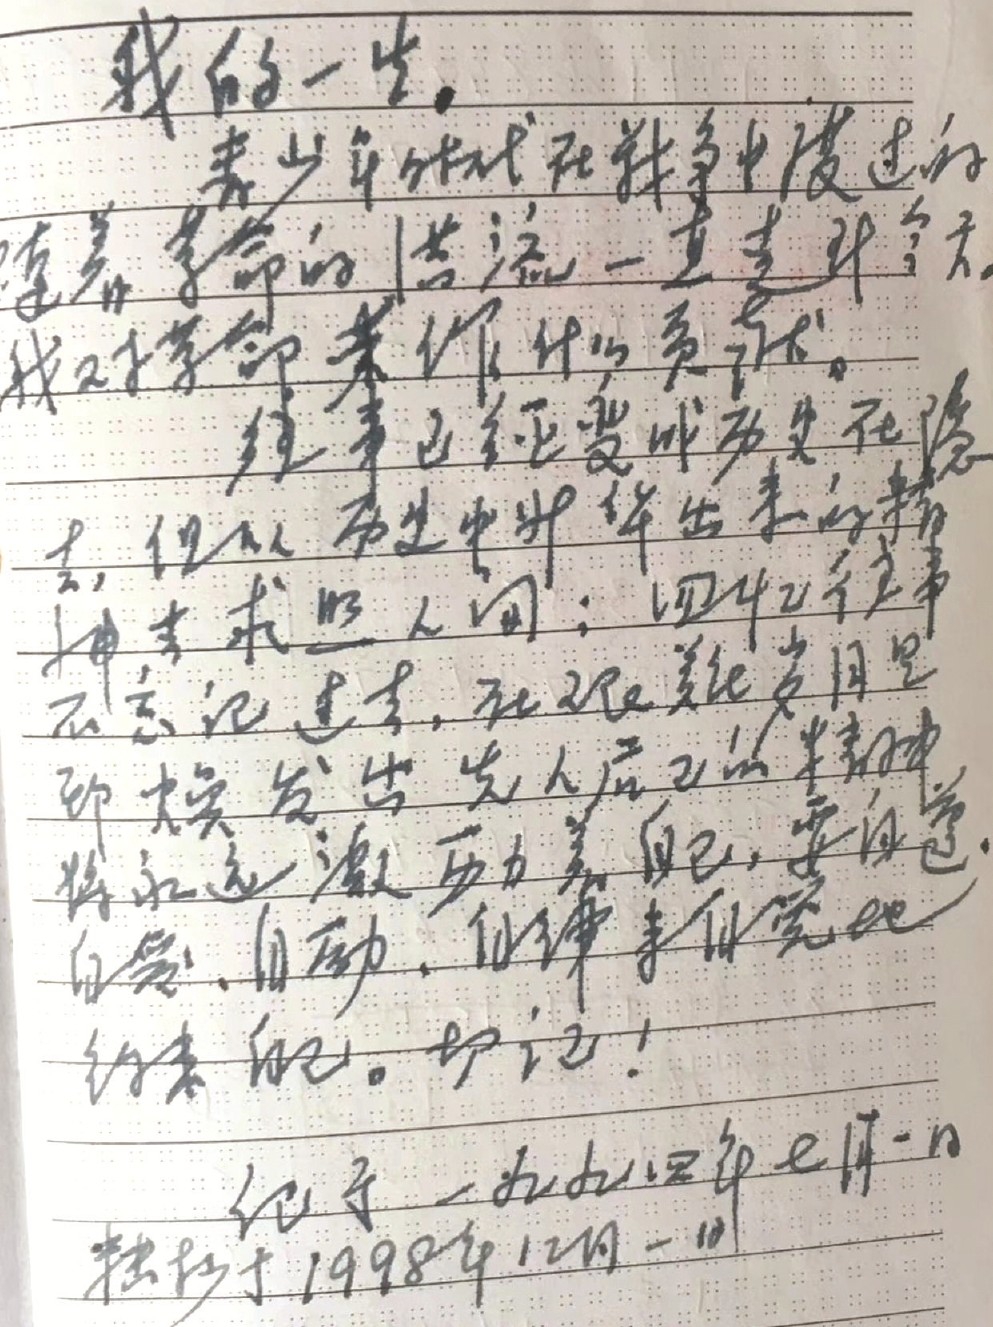 我的一生。
青少年时代在战争中渡过的
随着革命的洪流一直走到今天。
我对革命未作什么贡献。
往事已经变成历史在隐
去,但从历史中升华出来的精
神去求照人间:回忆往事
不忘记过去,在艰难岁月里
却焕发出先人后己的精神,
将永远激励着自己,要自尊.
自爱、自励、自律来自觉地
约束自己。切记!
记于一九九四年七月一日
抄于1998年12月一日